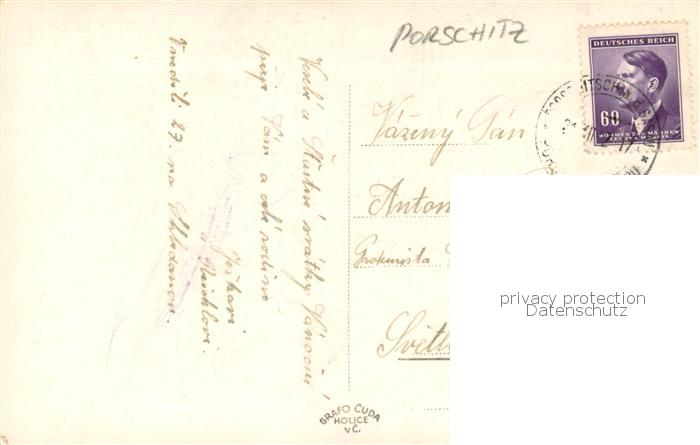 PORSCHITZ
DEUTSCHES REICH
60
BÖHMEN UND MÄHREN
ČECHY A MORAVA
Veselé a Šťastné svátky Vánoční
přeje Vám a celé rodině
Reichlovi.
V neděli 27 na Shledanou.
Vážený Pán
Anton
Prokurista
Světl
GRAFO ČUDA
HOLICE
V.Č.
privacy protection
Datenschutz